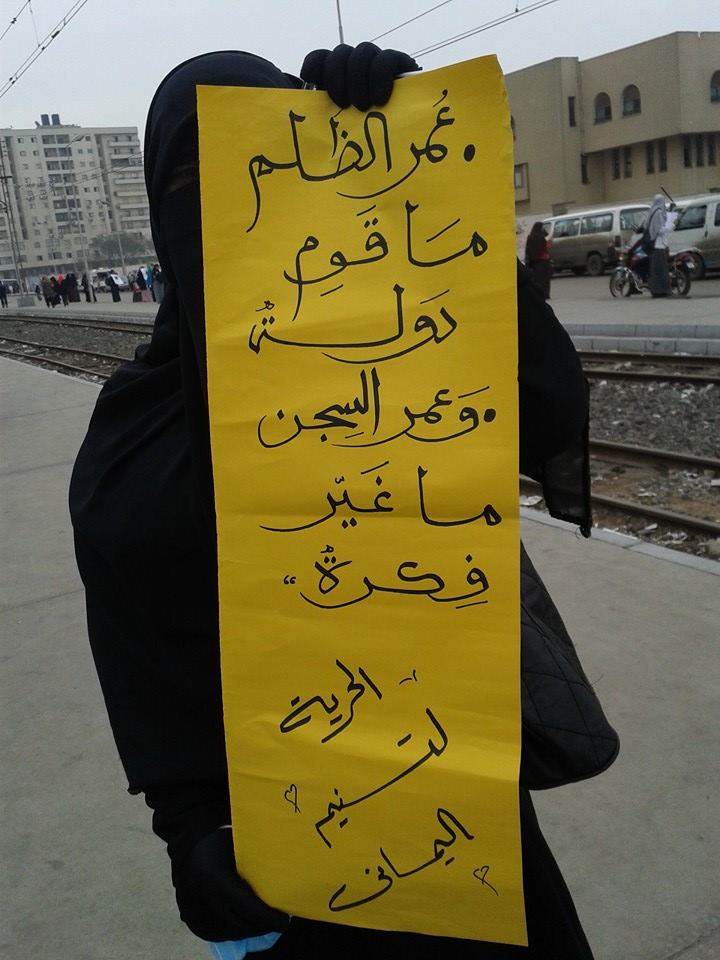 • عُمر الظلم
مَا قَومِ
دَولةٌ
• وَعمر السِجن
ما غَيّر
فِكرةٌ “
الحرية
لتسنيم
اليمانى